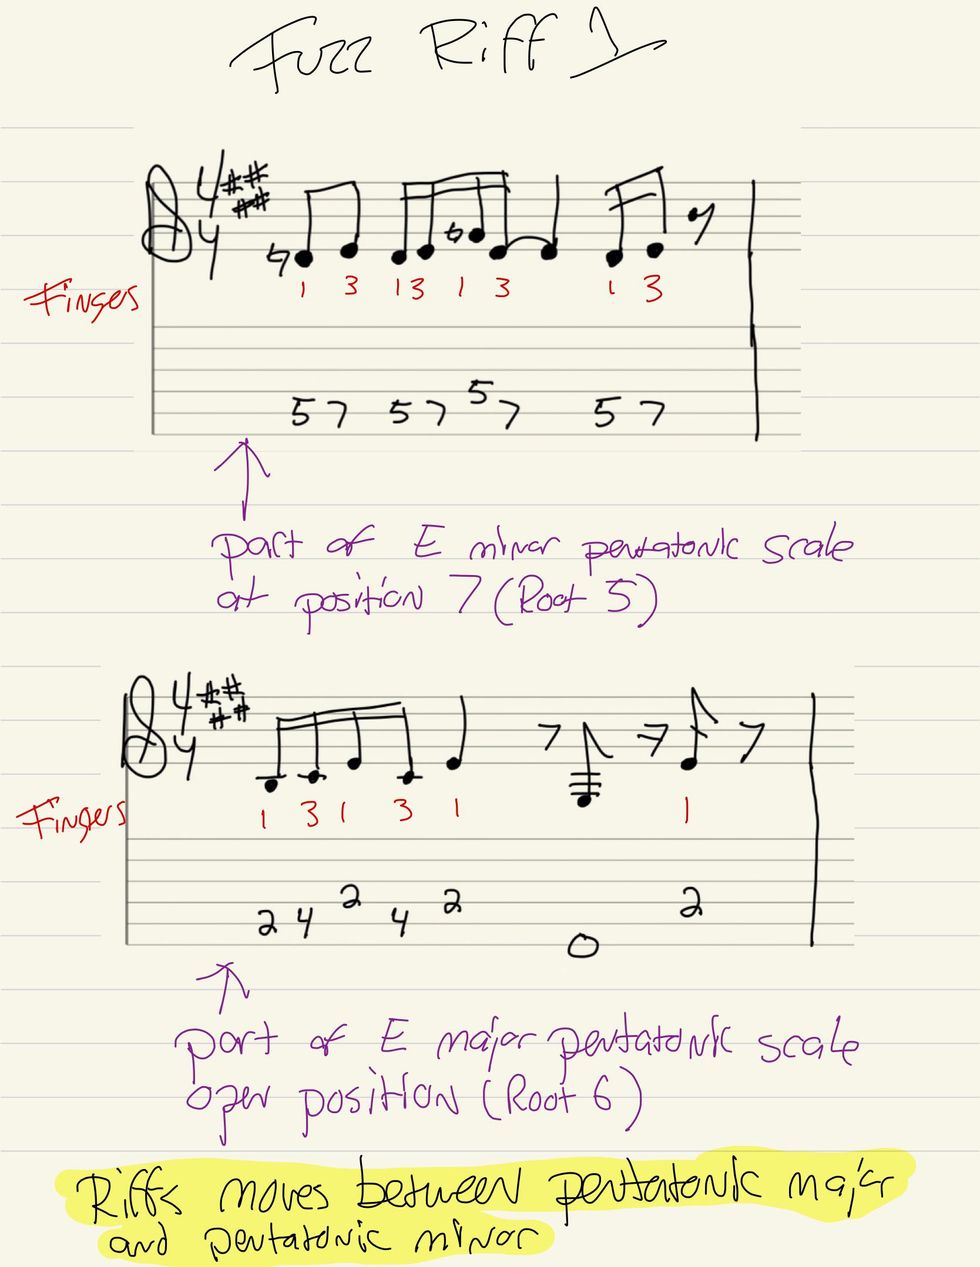 Fuzz Riff 1
4
4
Fingers
1 3 1 3 1 3 1 3
5 7 5 7 5 7 5 7
part of E minor pentatonic scale
at position 7 (Root 5)
4
4
Fingers
1 3 1 3 1 1
2 4 2 4 2 0 2
part of E major pentatonic scale
open position (Root 6)
Riffs moves between pentatonic major
and pentatonic minor